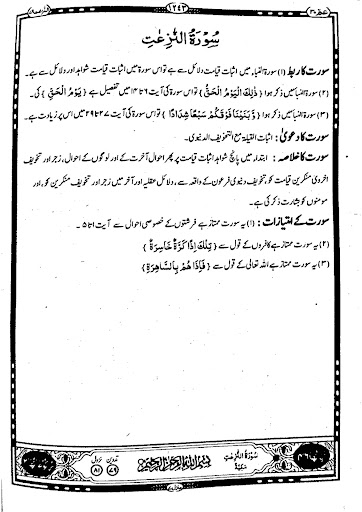 ۱۲۴۳
سُوْرَۃُ النّٰزِعٰتِ
سورت کا ربط (۱) سورۃ النباء میں اثبات قیامت دلائل سے ہے تو اس سورۃ میں اثبات قیامت شواہد اور دلائل سے ہے۔
(۲) سورۃ النباء میں ذکر ہوا { ذٰلِكَ الْيَوْمُ الْحَقُّ } تو اس سورۃ کی آیت ۶ تا ۱۴ میں تفصیل ہے { يَوْمُ الْحَقُّ } کی۔
(۳) سورۃ النباء میں ذکر ہوا { وَّبَنَيْنَا فَوْقَكُمْ سَبْعًا شِدَادًا } تو اس سورۃ کی آیت ۲۷ تا ۲۹ میں اس پر زیادت ہے۔
سورت کا دعویٰ : اثبات القیامۃ مع التخویف الدنیوی۔
سورت کا خلاصہ : ابتداء میں پانچ شواہد اثبات قیامت پر پھر احوال آخرت کے اور لوگوں کے احوال، زجر اور تخویف
اخروی منکرین قیامت کو، تخویف دنیوی فرعون کے واقعہ سے، دلائل عقلیہ اور آخر میں زجر اور تخویف منکرین کو، اور
مومنوں کو بشارت ذکر کی ہے۔
سورت کے امتیازات : (۱) یہ سورت ممتاز ہے فرشتوں کے خصوصی احوال سے آیت ۱ تا ۵ ۔
(۲) یہ سورت ممتاز ہے کافروں کے قول سے { تِلْكَ اِذًا كَرَّةٌ خَاسِرَةٌ }
(۳) یہ سورت ممتاز ہے اللہ تعالیٰ کے قول سے { فَاِذَا هُمْ بِالسَّاهِرَةِ }
سُوْرَۃُ النّٰزِعٰتِ
مکیۃ
بِسْمِ اللّٰهِ الرَّحْمٰنِ الرَّحِيْمِ
تدوین ۷۹
نزول ۸۱